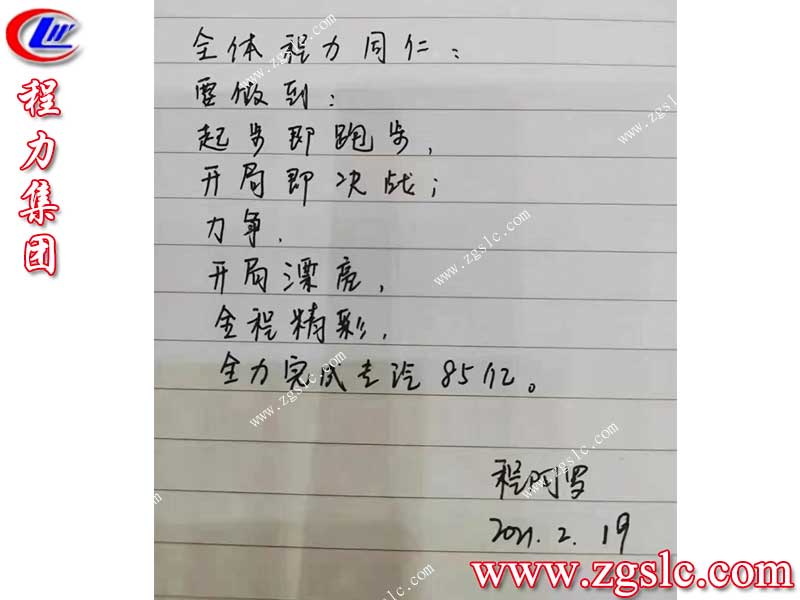 CLW
程力集团
全体程力同仁：
要做到：
起步即跑步，
开局即决战；
力争，
开局漂亮，
全程精彩，
全力完成专汽85亿。
程阿罗
2021.2.19
www.zgslc.com
www.zgslc.com
www.zgslc.com
www.zgslc.com
www.zgslc.com
www.zgslc.com
www.zgslc.com
www.zgslc.com